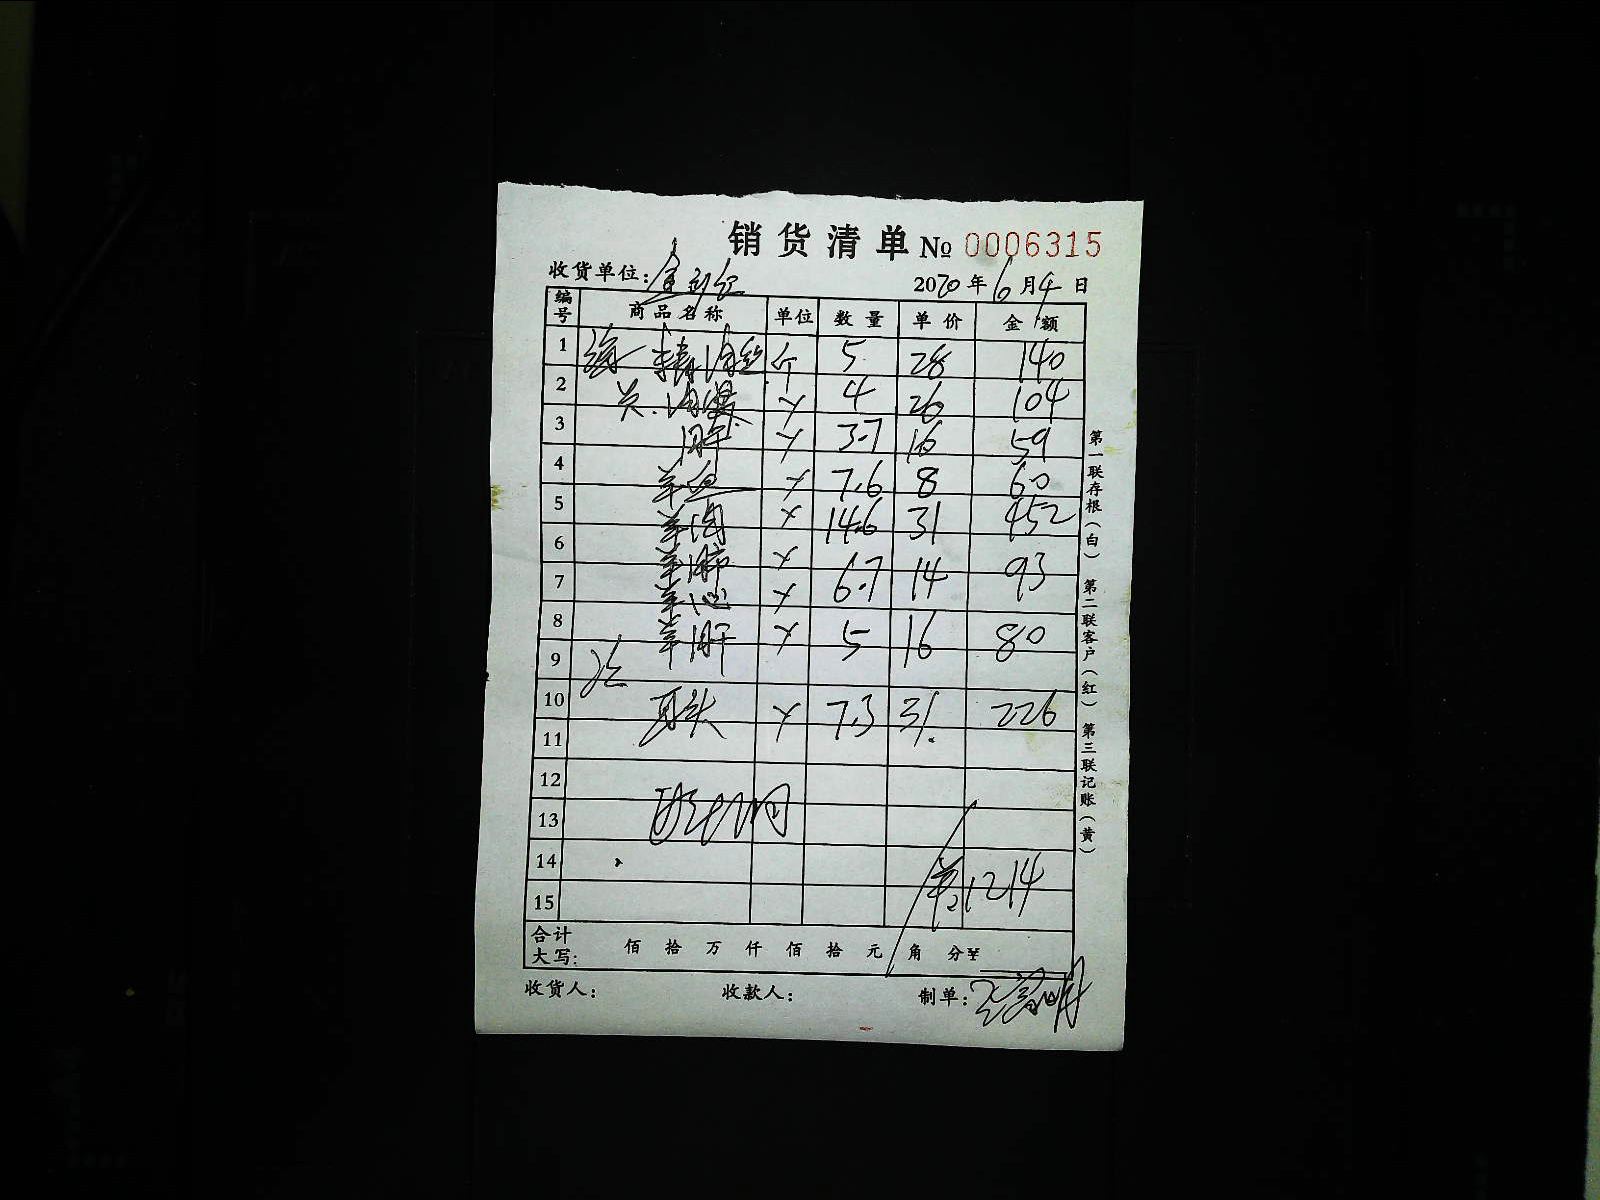 销货清单 № 0006315
收货单位: 2020年6月4日
编号 商品名称 单位 数量 单价 金额
1 精肉丝 5 28 140
2 4 26 104
3 3.7 16 59
4 羊血 7.6 8 60
5 羊肉 14.6 31 452
6 羊肺 6.7 14 93
7 羊心
8 羊肚 5 16 80
9
10 7.3 31 226
11
12
13
14 1214
15
合计大写: 佰 拾 万 仟 佰 拾 元 角 分 ¥
收货人: 收款人: 制单:
第一联存根(白) 第二联客户(红) 第三联记账(黄)